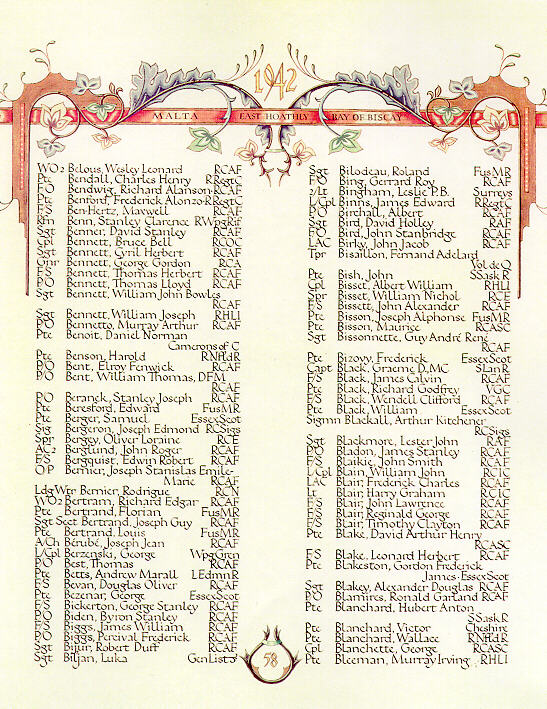 1942
MALTA EAST HOATHLY BAY OF BISCAY
WO2 Belous, Wesley Leonard RCAF
Ptc Bendall, Charles Henry RRegtC
F/O Bendwig, Richard Alanson RCAF
Ptc Benford, Frederick Alonzo RRegtC
F/S Ben-Hertz, Maxwell RCAF
Rfn Benn, Stanley Clarence RWpgRif
Sgt Benner, David Stanley RCAF
Cpl Bennett, Bruce Bell RCOC
Sgt Bennett, Cyril Herbert RCAF
Gnr Bennett, George Gordon RCA
F/S Bennett, Thomas Herbert RCAF
P/O Bennett, Thomas Lloyd RCAF
Sgt Bennett, William John Bowles
RCAF
Sgt Bennett, William Joseph RHLI
P/O Bennetto, Murray Arthur RCAF
Ptc Benoit, Daniel Norman
Camerons of C
Ptc Benson, Harold RNfldR
P/O Bent, Elroy Fenwick RCAF
P/O Bent, William Thomas, DFM
RCAF
P/O Beranek, Stanley Joseph RCAF
Ptc Beresford, Edward FusMR
Ptc Berger, Samuel EssexScot
Sig Bergeron, Joseph Edmond RCSigs
Spr Bergey, Oliver Loraine RCE
AC2 Berglund, John Roger RCAF
F/S Bergquist, Edwin Robert RCAF
OP Bernier, Joseph Stanislas Emile-
Marie RCAF
LdgWtr Bernier, Rodrigue RCN
WO2 Bertram, Richard Edgar RCAF
Ptc Bertrand, Florian FusMR
Sgt Sect Bertrand, Joseph Guy RCAF
Ptc Bertrand, Louis FusMR
A/Ch Bérubé, Joseph Jean RCAF
L/Cpl Berzenski, George WpgGrn
P/O Best, Thomas RCAF
Ptc Betts, Andrew Marall LEdmnR
F/S Bevan, Douglas Oliver RCAF
Ptc Bezenar, George EssexScot
F/S Bickerton, George Stanley RCAF
P/O Biden, Byron Stanley RCAF
F/S Biggs, James William RCAF
P/O Biggs, Percival Frederick RCAF
Sgt Bijur, Robert Duff RCAF
Sgt Biljan, Luka GenListo
Sgt Bilodeau, Roland FusMR
F/O Bing, Gerrard Roy RCAF
2/Lt Bingham, Leslie P.B. Surreys
L/Cpl Binns, James Edward RRegtC
P/O Birchall, Albert RCAF
Sgt Bird, David Holley RAF
F/O Bird, John Stanbridge RCAF
LAC Birky, John Jacob RCAF
Tpr Bisaillon, Fernand Adelard
Vol de Q
Ptc Bish, John SSaskR
Cpl Bisset, Albert William RHLI
Spr Bisset, William Nichol RCE
F/S Bissett, John Alexander RCAF
Ptc Bisson, Joseph Alphonse FusMR
Ptc Bisson, Maurice RCASC
Sgt Bissonnette, Guy André René
RCAF
Ptc Bizovy, Frederick EssexScot
Capt Black, Graeme D., MC SLanR
F/S Black, James Calvin RCAF
Ptc Black, Richard Godfrey VGC
F/S Black, Wendell Clifford RCAF
Ptc Black, William EssexScot
Sigmn Blackall, Arthur Kitchener
RCSigs
Sgt Blackmore, Lester John RAF
P/O Bladon, James Stanley RCAF
F/S Blaikie, John Smith RCAF
L/Cpl Blain, William John RCIC
LAC Blair, Frederick Charles RCAF
Lt Blair, Harry Graham RCIC
F/S Blair, John Lawrence RCAF
F/S Blair, Reginald George RCAF
F/S Blair, Timothy Clayton RCAF
Ptc Blake, David Arthur Henry
RCASC
F/S Blake, Leonard Herbert RCAF
Ptc Blakeston, Gordon Frederick
James - EssexScot
Sgt Blakey, Alexander Douglas RCAF
P/O Blamires, Ronald Garland RCAF
Ptc Blanchard, Hubert Anton
SSaskR
Ptc Blanchard, Victor Cheshire
Ptc Blanchard, Wallace RNfldR
Cpl Blanchette, George RCASC
Ptc Bleeman, Murray Irving RHLI
58